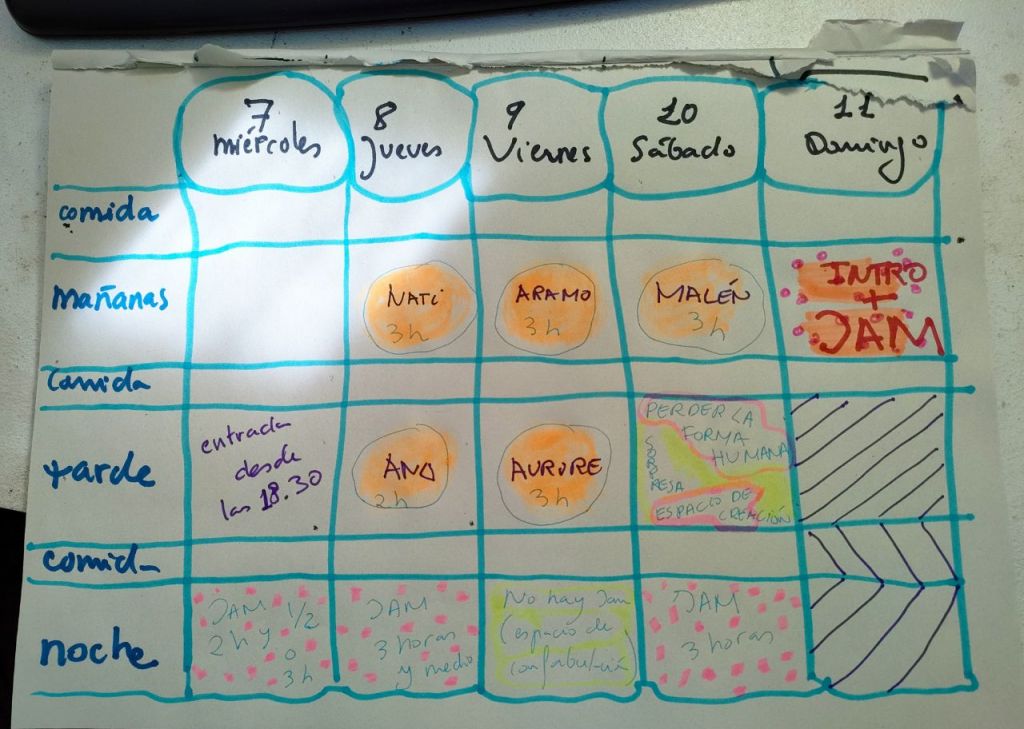 7 miércoles
8 Jueves
9 Viernes
10 Sábado
11 Domingo
comida
Mañanas
NATI 3h
ARAMO 3h
MALÉN 3h
INTRO
+
JAM
Comida
tarde
entrada
desde
las 18.30
2h
AURORE 3h
PERDER LA
FORMA
HUMANA
SORPRESA
ESPACIO DE
CREACIÓN
comid
noche
JAM
2h y 1/2
o
3h
JAM
3 horas
y medio
No hay Jam
(espacio de
confabulación)
JAM
3 horas